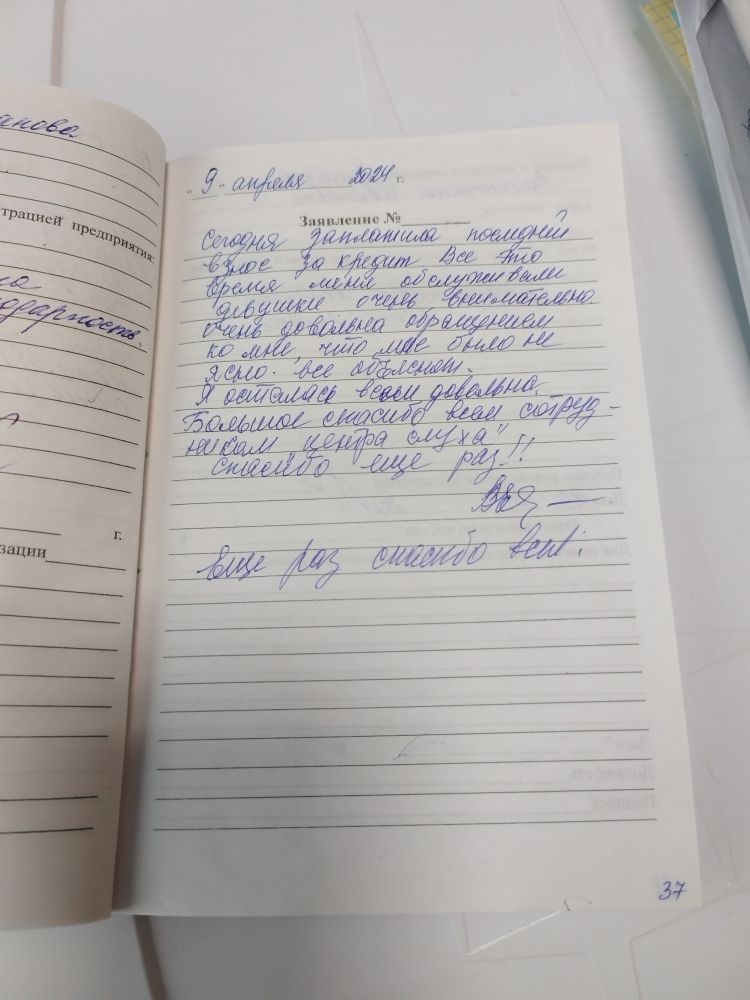 анова
страцией предприятия:
одарность.
г.
зации
" 9 " апреля 2024 г.
Заявление №
Сегодня заплатила последний
взнос за кредит. Все это
время меня обслуживали
девушки очень внимательно.
очень довольна обращением
ко мне, что мне было не
ясно. все объяснят.
Я осталась всем довольна.
Большое спасибо всем сотруд-
никам "центра слуха"
спасибо еще раз!!
Еще раз спасибо всем!
37